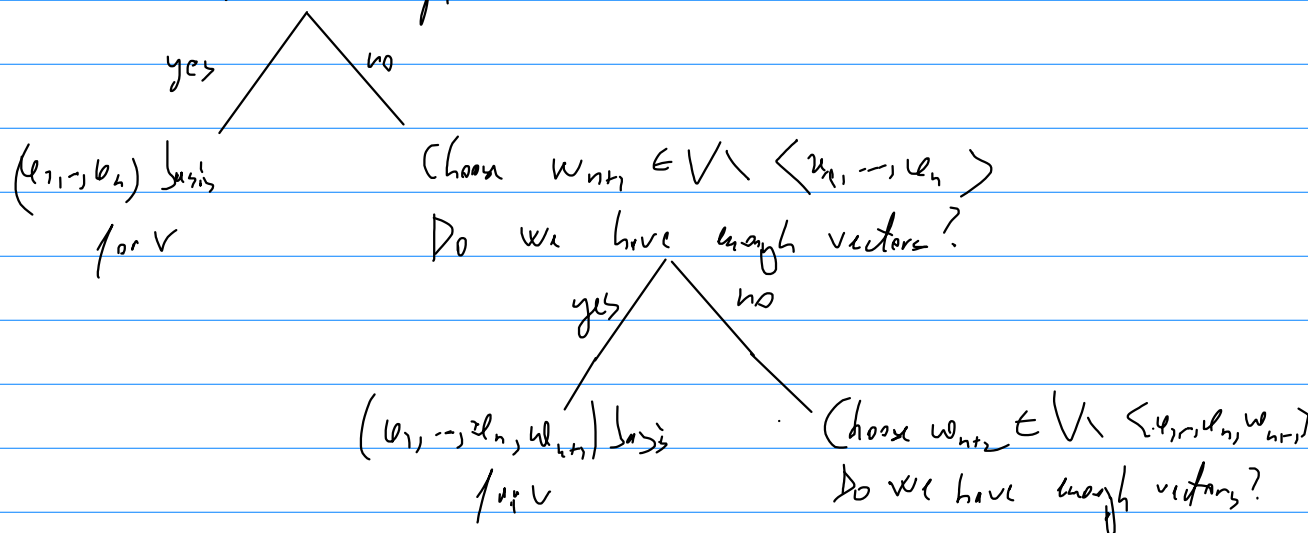 yes no
(v₁,..,vₙ) basis
for V
Choose wₙ₊₁ ∈ V\ <v₁, ..., vₙ>
Do we have enough vectors?
yes no
(v₁, ..., vₙ, wₙ₊₁) basis
for V
Choose wₙ₊₂ ∈ V\ <v₁,..,vₙ, wₙ₊₁>
Do we have enough vectors?